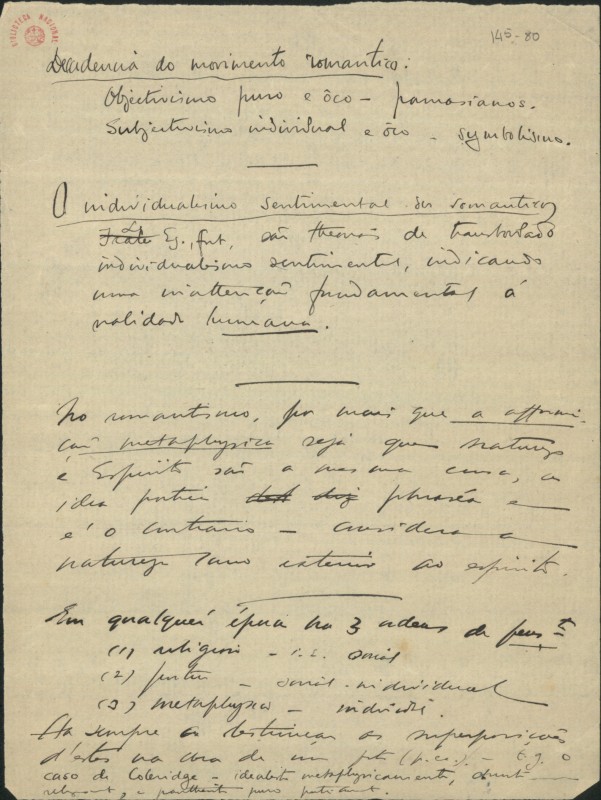 BIBLIOTECA NACIONAL
145-80
Decadencia do movimento romantico:
Objectivismo puro e ôco – parnasianos.
Subjectivismo individual e ôco – symbolismo.
O individualismo sentimental dos romanticos
são theorias de transbordado
individualismo sentimental, indicando
uma inattenção fundamental á
realidade humana.
No romantismo, por mais que a affirma-
ção metaphysica seja que natureza
e Espirito são a mesma cousa, a
idea
é o contrario – considera a
natureza como exterior ao espirito.
Em qualquer época ha 3 ordens de
(1) religioso – i.e. social
(2) – social-individual
(3) metaphysico –
Ha sempre as superposições
d'estes na obra de um (p.ex.). – e.g. o
caso de Coleridge – idealista metaphysicamente,